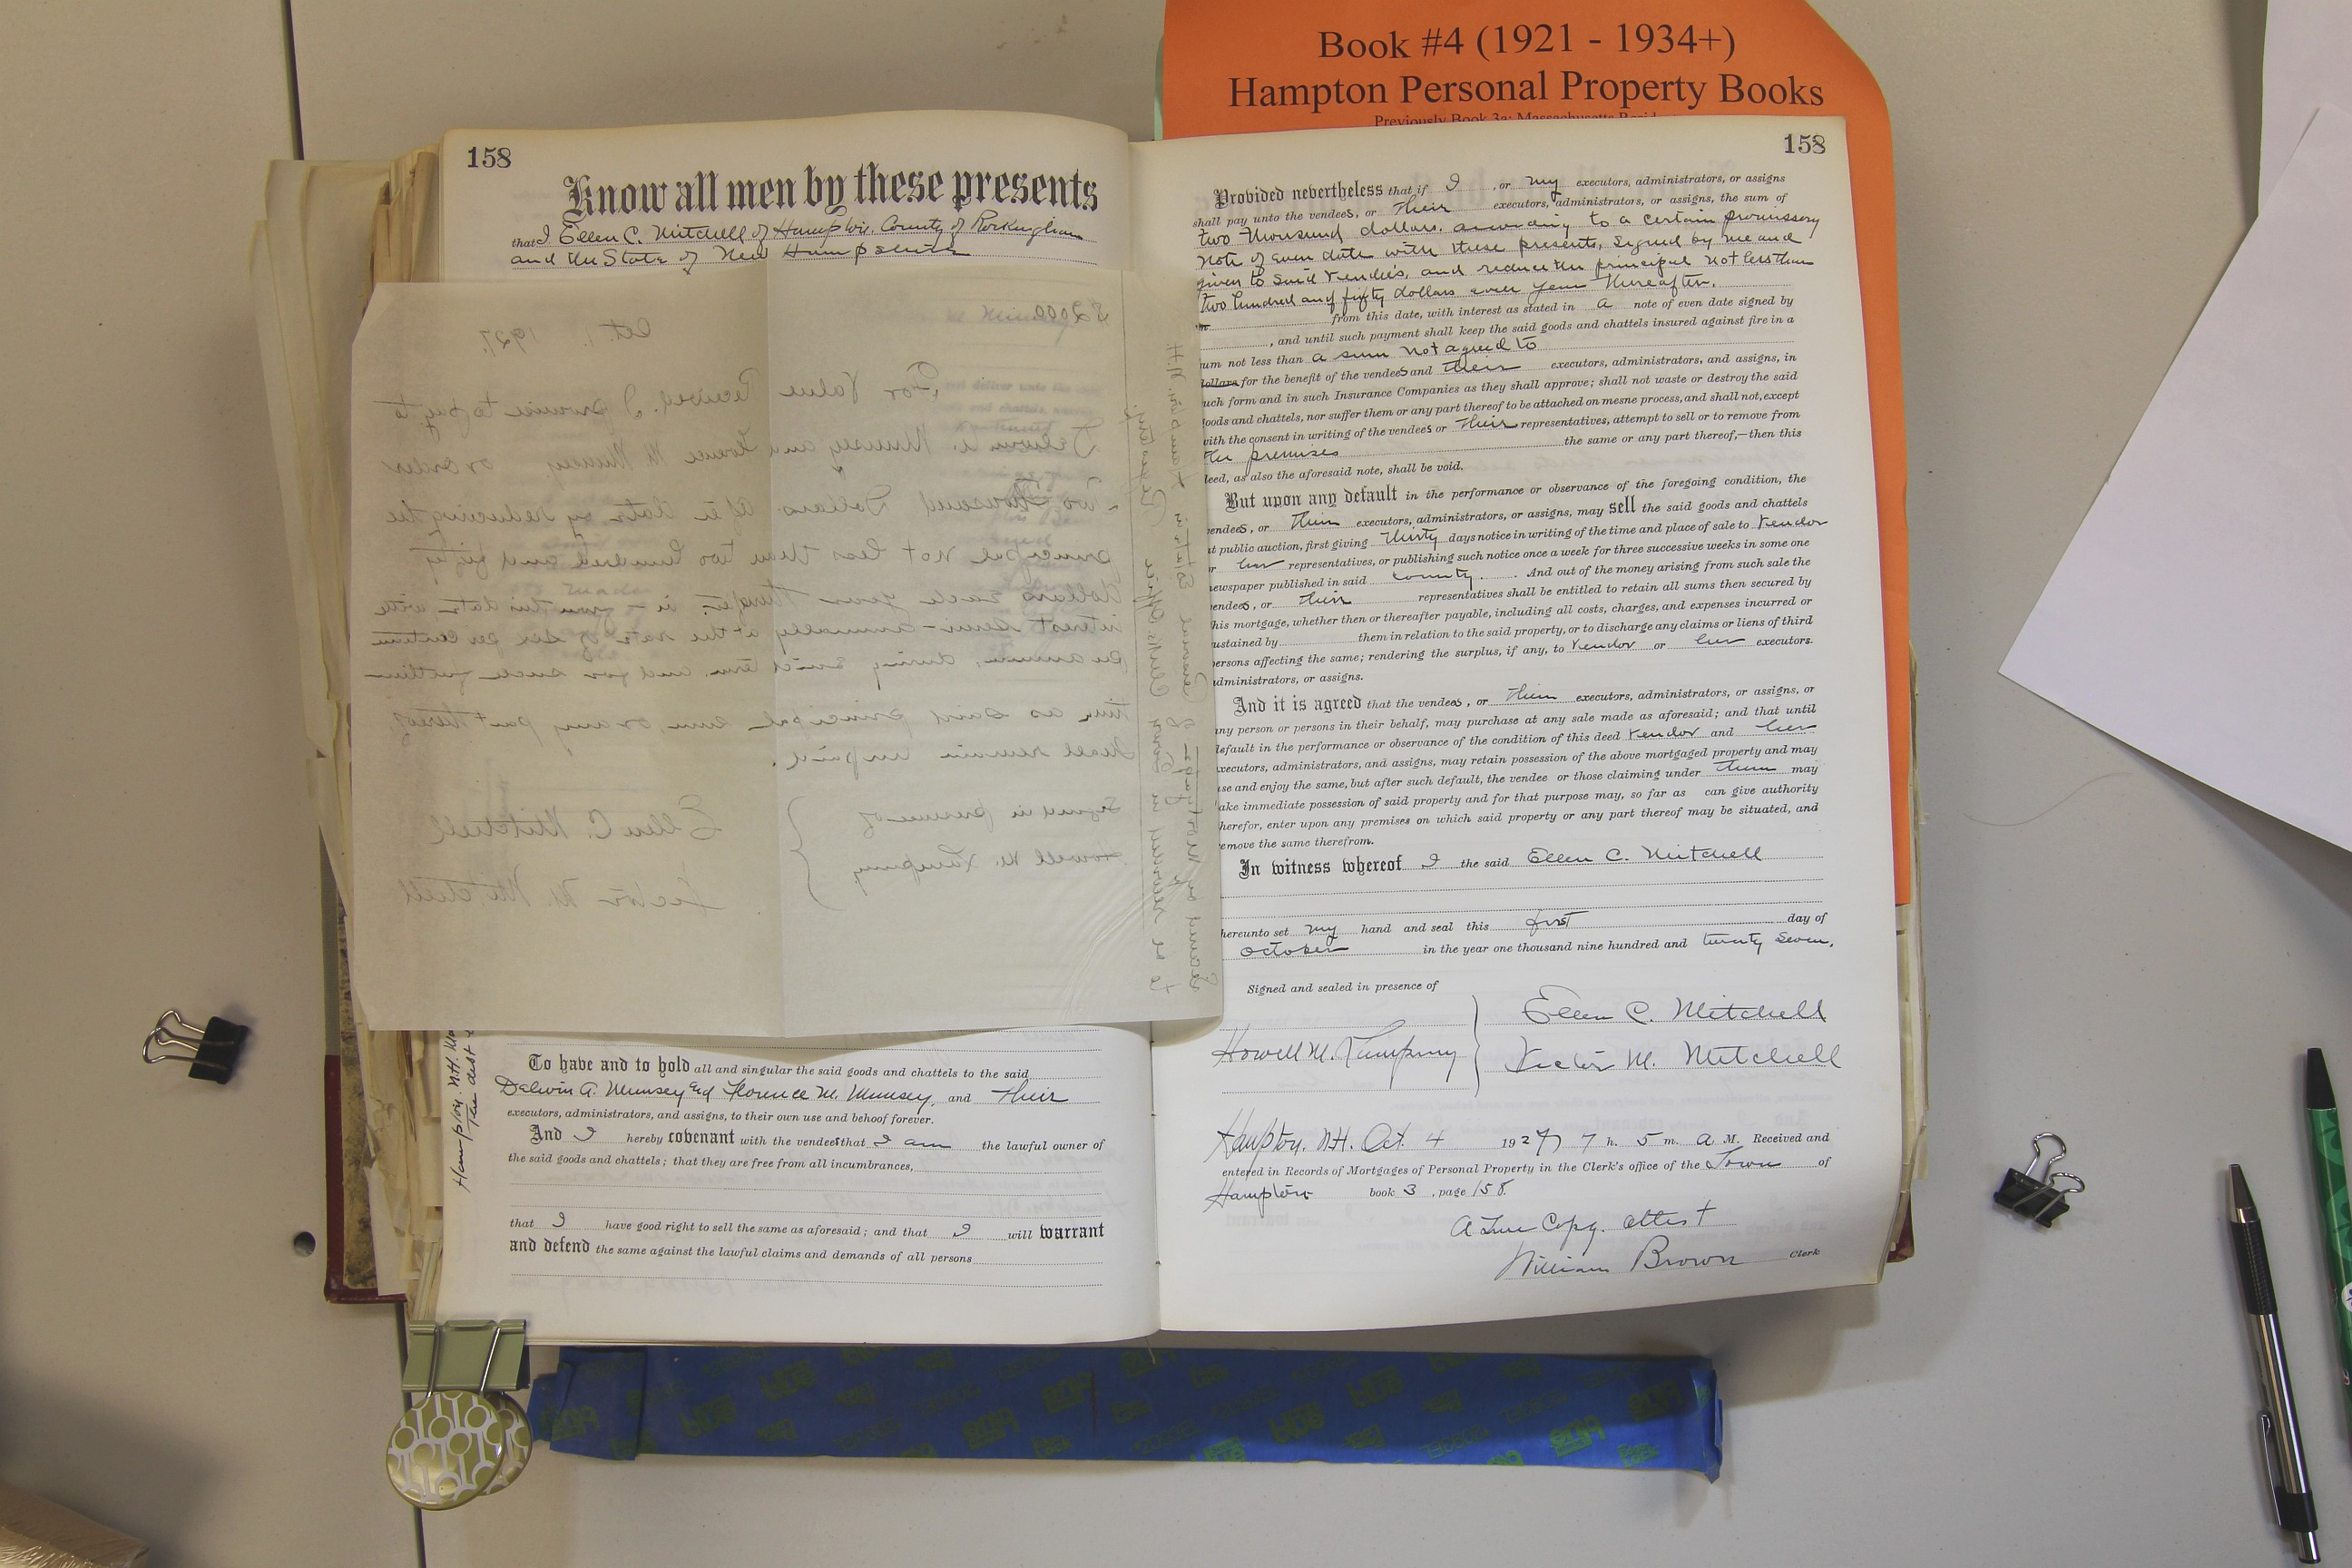 Book #4 (1921 - 1934+)
Hampton Personal Property Books
Previously Book 3a: Massachusetts
158
Know all men by these presents
that I Ellen C. Mitchell of Hampton, County of Rockingham
and the State of New Hampshire
$2000
Oct. 1. 1927.
For Value Received, I promise to pay to
Delwin A. Munsey and Florence M. Munsey or order
Two Thousand Dollars after date by reducing the
principal not less than two hundred and fifty
dollars each year thereafter, from this date with
interest semi-annually at the rate of six per centum
per annum, during said term and for such further
time as said principal sum, or any part thereof,
shall remain unpaid.
Signed in presence of
Howell M. Lamprey
Ellen C. Mitchell
Victor M. Mitchell
Secured by Mortgage of Personal Estate in Hampton N.H.
to be recorded in Town Clerks Office
Hampton, N.H.
To have and to hold all and singular the said goods and chattels to the said
Delwin A. Munsey and Florence M. Munsey, and Their
executors, administrators, and assigns, to their own use and behoof forever.
And I hereby covenant with the vendees that I am the lawful owner of
the said goods and chattels; that they are free from all incumbrances,
that I have good right to sell the same as aforesaid; and that I will warrant
and defend the same against the lawful claims and demands of all persons
158
Provided nevertheless that if I , or my executors, administrators, or assigns
shall pay unto the vendees, or Their executors, administrators, or assigns, the sum of
two thousand dollars. according to a certain promissory
note of even date with these presents, signed by me and
given to said vendees, and reduce the principal not less than
two hundred and fifty dollars ever year thereafter.
from this date, with interest as stated in a note of even date signed by
, and until such payment shall keep the said goods and chattels insured against fire in a
um not less than a sum not agreed to
dollars for the benefit of the vendees and their executors, administrators, and assigns, in
uch form and in such Insurance Companies as they shall approve; shall not waste or destroy the said
oods and chattels, nor suffer them or any part thereof to be attached on mesne process, and shall not, except
with the consent in writing of the vendees or Their representatives, attempt to sell or to remove from
the premises the same or any part thereof,—then this
leed, as also the aforesaid note, shall be void.
But upon any default in the performance or observance of the foregoing condition, the
vendees, or Their executors, administrators, or assigns, may sell the said goods and chattels
at public auction, first giving thirty days notice in writing of the time and place of sale to vendor
or her representatives, or publishing such notice once a week for three successive weeks in some one
newspaper published in said County. And out of the money arising from such sale the
endees, or their representatives shall be entitled to retain all sums then secured by
his mortgage, whether then or thereafter payable, including all costs, charges, and expenses incurred or
ustained by them in relation to the said property, or to discharge any claims or liens of third
ersons affecting the same; rendering the surplus, if any, to vendor or her executors.
administrators, or assigns.
And it is agreed that the vendees, or Their executors, administrators, or assigns, or
any person or persons in their behalf, may purchase at any sale made as aforesaid; and that until
default in the performance or observance of the condition of this deed vendor and her
executors, administrators, and assigns, may retain possession of the above mortgaged property and may
use and enjoy the same, but after such default, the vendee or those claiming under them may
ake immediate possession of said property and for that purpose may, so far as can give authority
herefor, enter upon any premises on which said property or any part thereof may be situated, and
emove the same therefrom.
In witness whereof I the said Ellen C. Mitchell
hereunto set my hand and seal this first day of
October in the year one thousand nine hundred and twenty seven.
Signed and sealed in presence of
Howell M. Lamprey
Ellen C. Mitchell
Victor M. Mitchell
Hampton, N.H. Oct. 4 1927 7 h. 5 m. A M. Received and
entered in Records of Mortgages of Personal Property in the Clerk's office of the Town of
Hampton book 3 , page 158.
A True Copy. Attest
William Brown Clerk